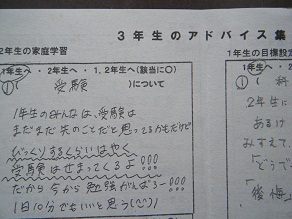 3年生のアドバイス集
2年生の家庭学習
1年生の目標設定
1年生へ・2年生へ・1,2年生へ(該当に○)
① (受験)について
1年生のみんなは、受験は
まだまだ先のことだと思ってるかもだけど
びっくりするくらいはやく
受験はせまってくるよ!!!
だから今から勉強がんばろー!!!
1日10分でもいいと思う
1年生へ・
① (科
2年生に
あるけ
みすえて、
「どうで
「後悔